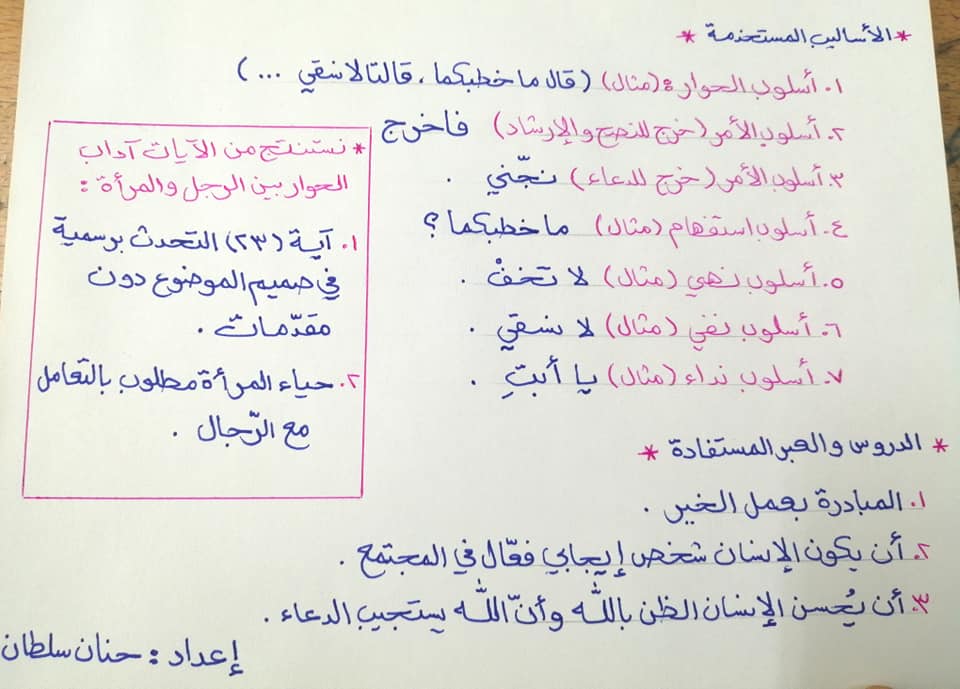 * الأساليب المستخدمة *
١. أسلوب الحوار: (مثال) (قال ما خطبكما، قالتا لا نسقي ...)
٢. أسلوب الأمر (خرج للنصح والإرشاد) فاخرج
٣. أسلوب الأمر (خرج للدعاء) نجّني .
٤. أسلوب استفهام (مثال) ما خطبكما؟
٥. أسلوب نهي (مثال) لا تخفْ .
٦. أسلوب نفي (مثال) لا نسقي .
٧. أسلوب نداء (مثال) يا أبتِ .
* نستنتج من الآيات آداب
الحوار بين الرجل والمرأة:
١. آية (٢٣) التحدث برسمية
في صميم الموضوع دون
مقدّمات .
٢. حياء المرأة مطلوب بالتعامل
مع الرّجال .
* الدروس والعبر المستفادة *
١. المبادرة بعمل الخير .
٢. أن يكون الإنسان شخص إيجابي فعّال في المجتمع .
٣. أن يُحسن الإنسان الظن بالله وأنّ الله يستجيب الدعاء .
إعداد: حنان سلطان